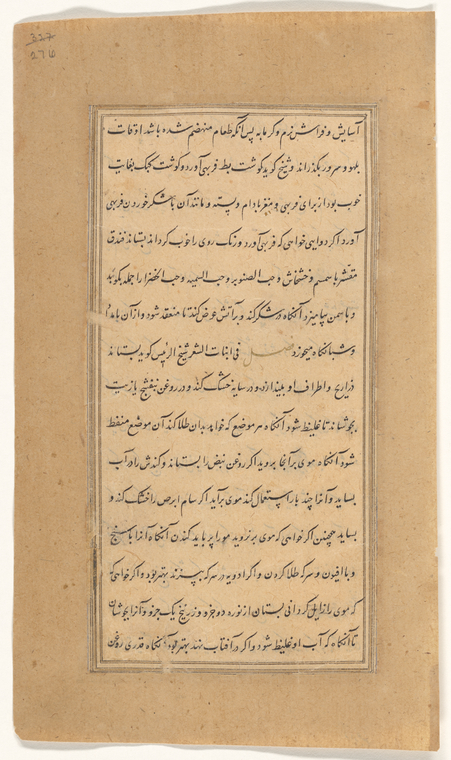 327
276
آسایش و فراش نرم و گرمابه پس آنکه طعام منهضم شده باشد اوقات
بلهو و سرور بگذراند و شیخ گوید گوشت بط فربهی آورد و گوشت کبک بغایت
خوب بود از برای فربهی و مغز بادام و پسته و مانند آن باشکر خوردن فربهی
آورد اگر دوایی خواهی که فربهی آورد و رنگ روی را خوب گرداند بستاند فندق
مقشر با سمسم و خشخاش و حب الصنوبر و حب السمنه و حب الخضرا را جمله بکوبد
و با سمن بیامیزد آنگاه در شکر کند و بر آتش عرض کند تا منعقد شود و از آن بامداد
و شبانگاه میخورد فصل فی انبات الشعر شیخ الرئیس گوید بستاند
ذراریح و اطراف او بیندازد و در سایه خشک کند و در روغن بنفشج یا زیت
بجوشاند تا غلیظ شود آنگاه هر موضع که خواهد بدان طلا کند آن موضع منفط
شود آنگاه موی بر آنجا بروید اگر روغن بیض را بستاند و کندش را در آب
بساید و آنرا چند بار استعمال کند موی برآید اگر سام ابرص را خشک کند و
بساید همچنین اگر خواهی که موی برنروید مو را بر باید کندن آنگاه آنرا با سنج
و با افیون و سرکه طلا کردن و اگر ادویه در سرکه بپزند بهتر بود و اگر خواهی که
که موی را زایل گردانی بستان از نوره دو جزو و زرنیخ یک جزو و آنرا بجوشان
تا آنگاه که آب او غلیظ شود و اگر در آفتاب نهند بهتر بود آنگاه قدری روغن